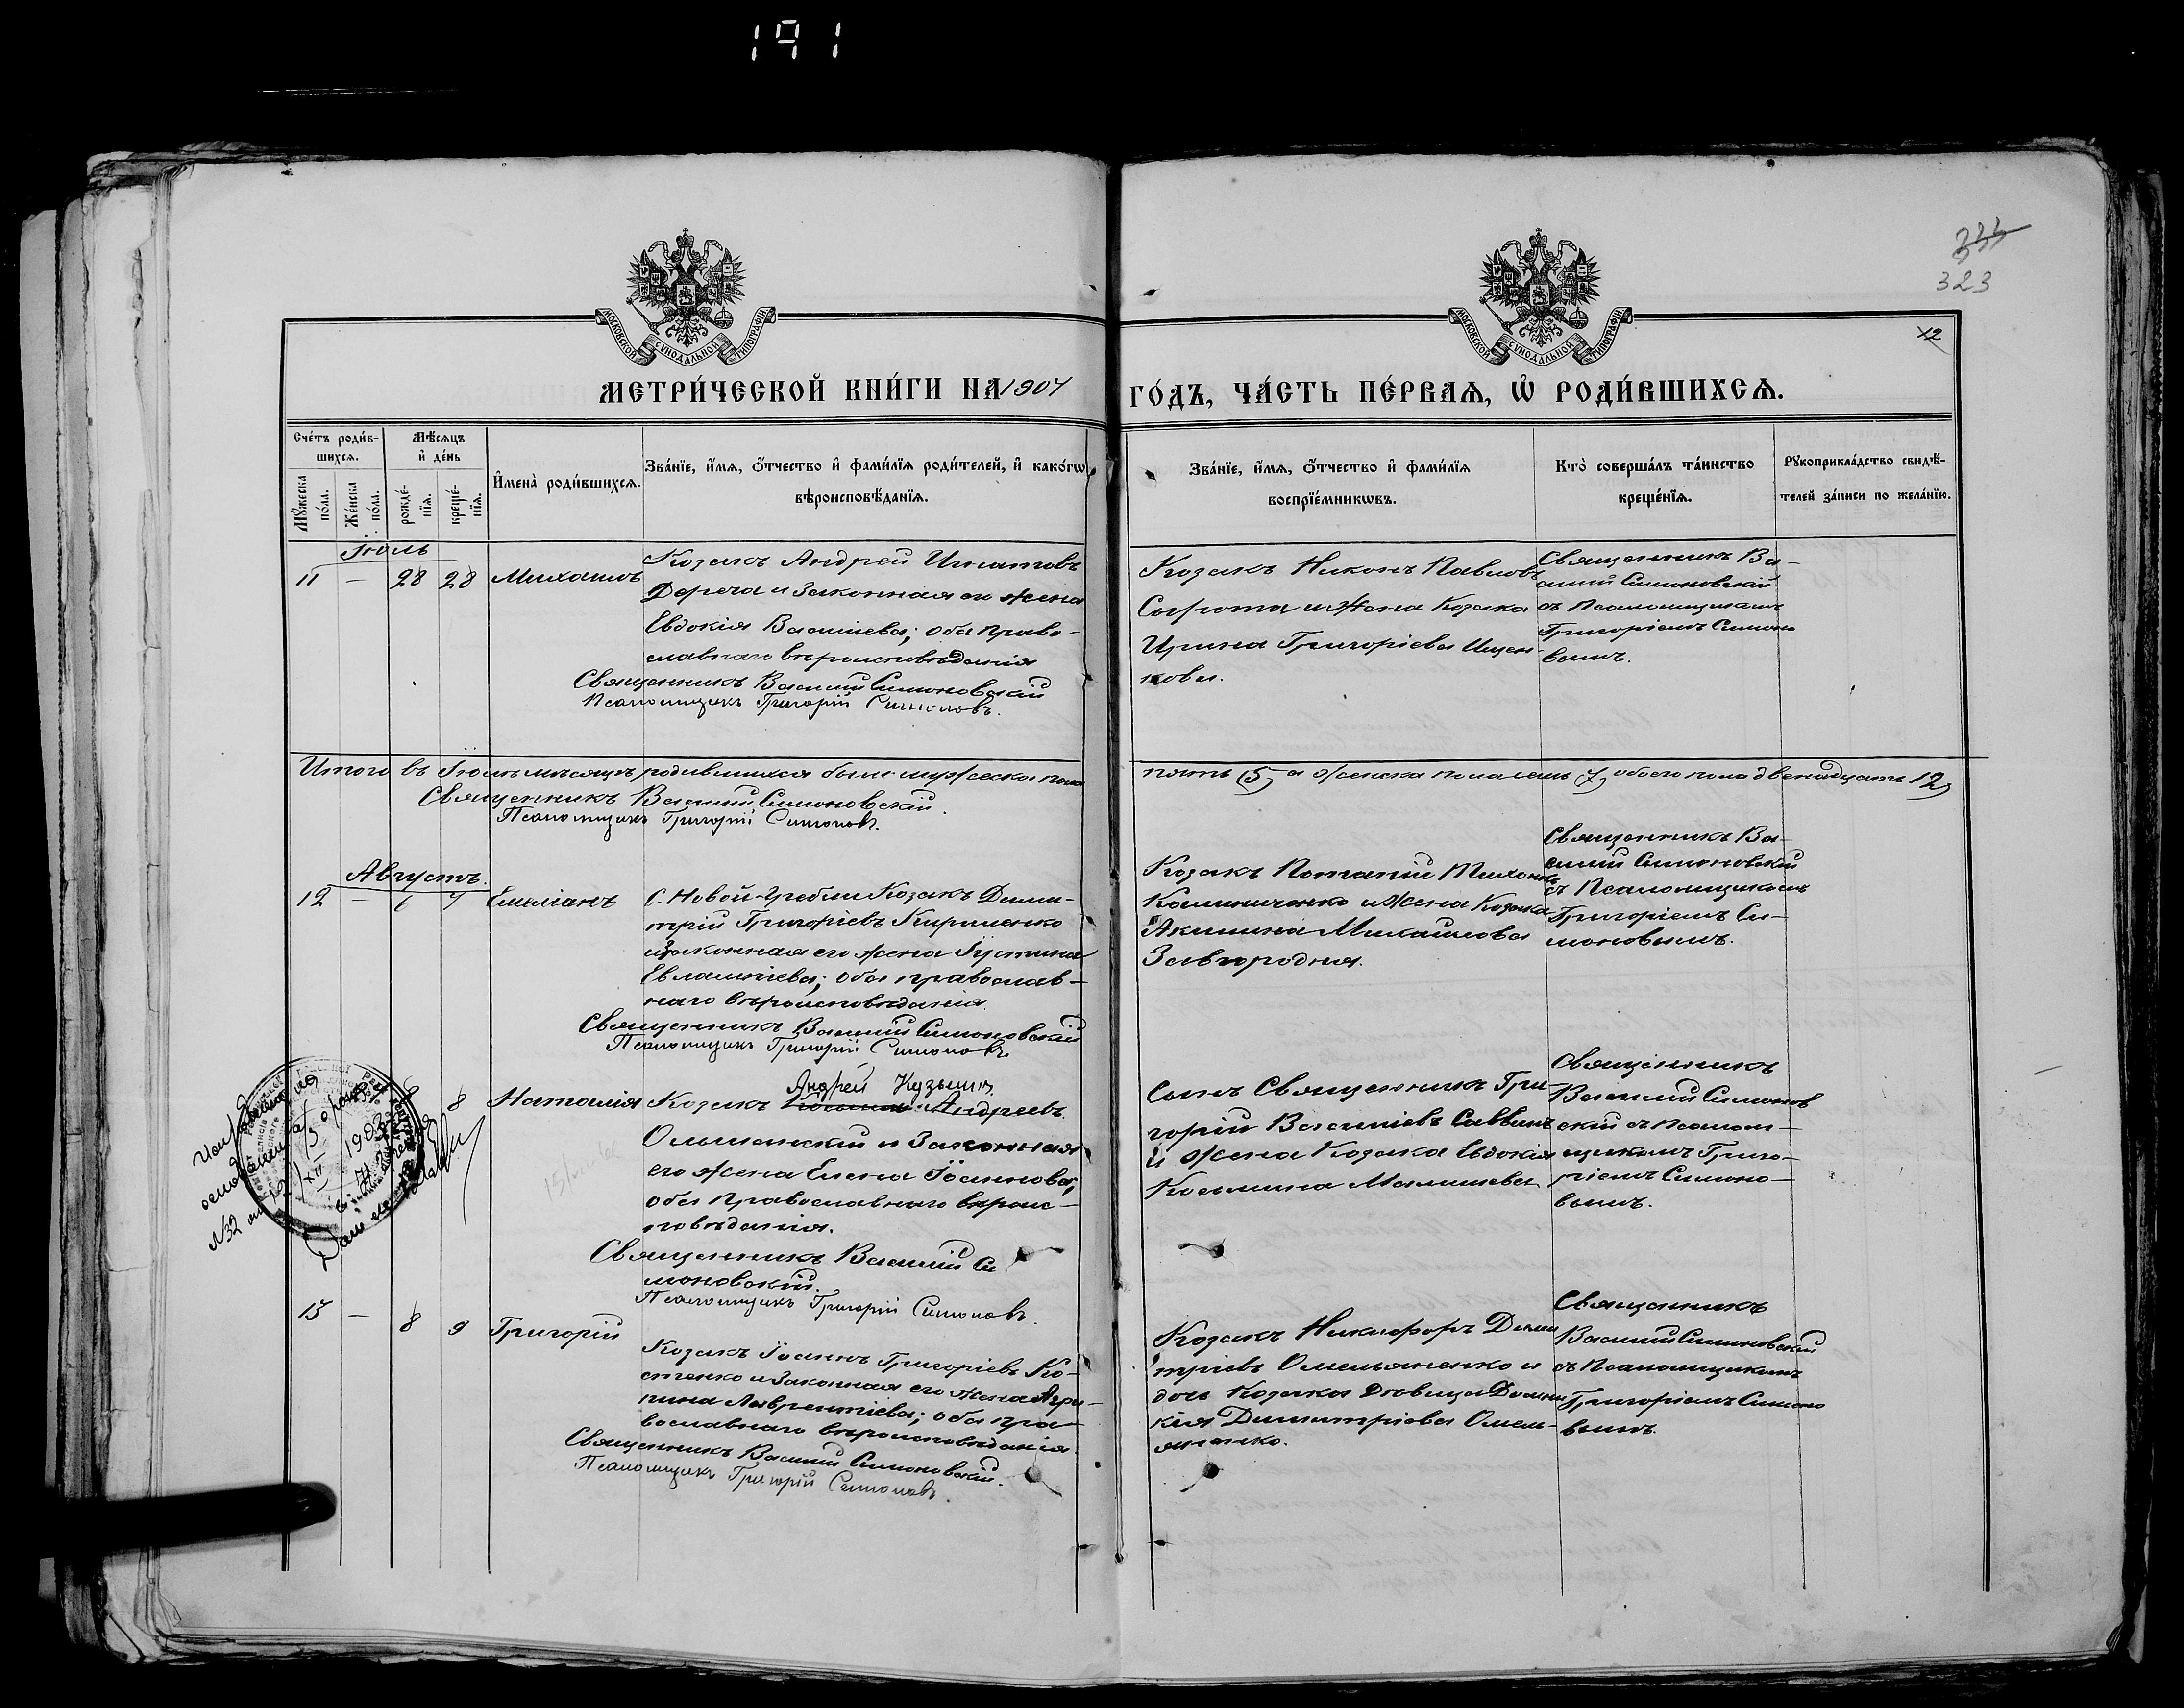 191
323
12
МОСКОВСКОЙ СѴНОДАЛЬНОЙ ТИПОГРАФІИ
МОСКОВСКОЙ СѴНОДАЛЬНОЙ ТИПОГРАФІИ
МЕТРИ́ЧЕСКОЙ КНИ́ГИ НА 1907
ГО́ДЪ, ЧА́СТЬ ПЕ́РВАѦ, Ѡ҆ РОДИ́ВШИХСѦ.
Сче́тъ роди́в-
шихсѧ.
Мꙋ́жеска по́ла.
Же́нска по́ла.
Мѣ́сѧцъ
и҆ де́нь
рожде́-
нїѧ.
креще́-
нїѧ.
И҆мена̀ роди́вшихсѧ.
Зва́нїе, и҆́мѧ, ѻ҆́тчество и҆ фами́лїѧ роди́телей, и҆ како́гѡ
вѣроисповѣ́данїѧ.
Зва́нїе, и҆́мѧ, ѻ҆́тчество и҆ фами́лїѧ
воспрїе́мникѡвъ.
Кто̀ соверша́лъ та́инство
креще́нїѧ.
Рꙋкоприкла́дство свидѣ́-
телей за́писи по жела́нїю.
Іюль
11 — 28 28 Михаилъ
Козакъ Андрей Игнатовъ
Дереча и Законная его жена
Евдокія Василіева; оба Право-
славнаго вѣроисповѣданія
Священникъ Василій Симоновскій
Псаломщикъ Григорій Симоновъ.
Козакъ Никонъ Павловъ
Сырота и Жена Козака
Ирина Григоріева Ищен-
кова.
Священникъ Ва-
силій Симоновскій
съ Псаломщикомъ
Григоріемъ Симоно
вымъ.
Итого въ Іюлѣ мѣсяцѣ родившихся было мужеска пола
пять (5) а женска пола семь (7) обоего пола двенадцать 12)
Священникъ Василій Симоновскій.
Псаломщикъ Григорій Симоновъ.
Августъ.
12 — 6 7 Емеліанъ
С. Новой-Гребли Козакъ Дими-
трій Григоріевъ Кириленко
и Законная его жена Іустина
Евлампіева; оба православ-
наго вѣроисповѣданія.
Священникъ Василій Симоновскій
Псаломщикъ Григорій Симоновъ.
Козакъ Потапій Тихоновъ
Калиниченко и Жена Козака
Акилина Михаилова
Завгородняя.
Священникъ Ва-
силій Симоновскій
съ Псаломщикомъ
Григоріемъ Си-
моновымъ.
8 Наталія
Андрей Кузьминъ
Козакъ Андреевъ
Ольшанскій и Законная
его жена Елена Іоаннова;
оба Православнаго вѣроис-
повѣданія.
Священникъ Василій Си
моновскій.
Псаломщикъ Григорій Симоновъ.
Сынъ Священника Гри
горій Василіевъ Саввинъ
и Жена Козака Евдокія
Косьмина Малышева
Священникъ
Василій Симонов
скій съ Псалом-
щикомъ Григо-
ріемъ Симоно-
вымъ.
13 — 8 9 Григорій
Козакъ Іоаннъ Григоріевъ Ко-
стенко и Законная его жена Агри-
пина Лаврентіева; оба пра-
вославнаго вѣроисповѣданія.
Священникъ Василій Симоновскій.
Псаломщикъ Григорій Симоновъ.
Козакъ Никифоръ Дими
тріевъ Омельяненко и
дочь Козака дѣвица Домни
кія Димитріева Омель-
яненко.
Священникъ
Василій Симоновскій
съ Псаломщикомъ
Григоріемъ Симоно
вымъ.